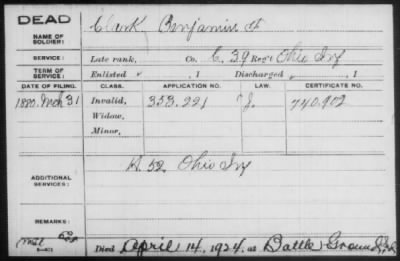 DEAD
NAME OF SOLDIER: Clark, Benjamin
SERVICE: Late rank, Co. C. 39 Reg't Ohio Inf
TERM OF SERVICE: Enlisted , 1 Discharged , 1
DATE OF FILING. CLASS. APPLICATION NO. LAW. CERTIFICATE NO.
1880. Mch 31 Invalid, 353.221 740.902
Widow,
Minor,
ADDITIONAL SERVICES: H. 52. Ohio Inf
REMARKS:
Died April 14, 1924, at Battle Ground